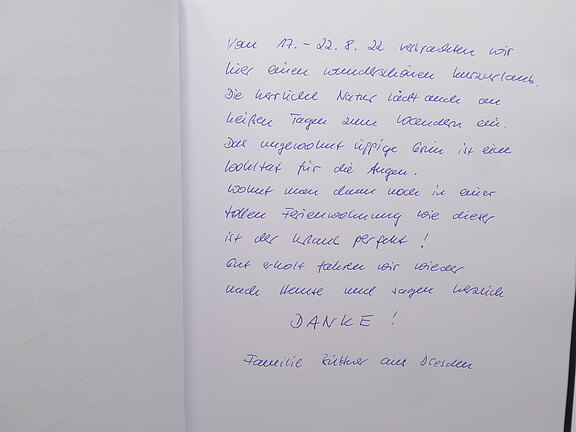 Vom 17. - 22. 8. 22 verbrachten wir
hier einen wunderschönen Kurzurlaub.
Die herrliche Natur lädt auch an
heißen Tagen zum Wandern ein.
Das ungewohnt üppige Grün ist eine
Wohltat für die Augen.
Wohnt man dann noch in einer
tollen Ferienwohnung wie dieser
ist der Urlaub perfekt!
Gut erholt fahren wir wieder
nach Hause und sagen herzlich
DANKE!
Familie aus Dresden